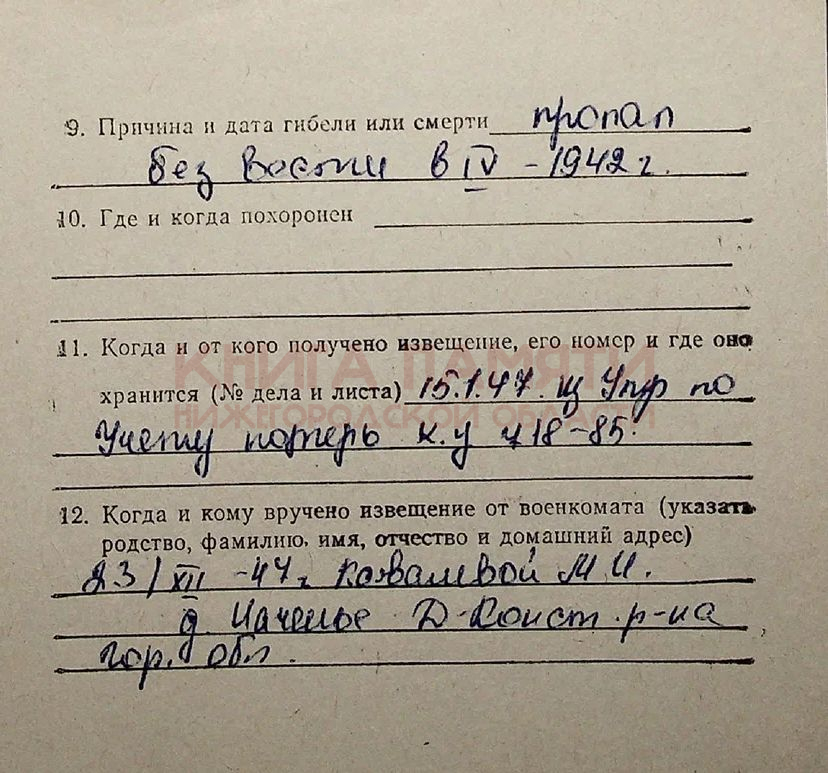 9. Причина и дата гибели или смерти пропал
без вести в IV -1942 г.
10. Где и когда похоронен
11. Когда и от кого получено извещение, его номер и где оно
КНИГА ПАМЯТИ
хранится (№ дела и листа) 15.1.47. из Упр по
НИЖЕГОРОДСКОЙ ОБЛАСТИ
Учету потерь к.у 418-85.
12. Когда и кому вручено извещение от военкомата (указать
родство, фамилию, имя, отчество и домашний адрес)
23/XII -47 г. Ковалевой М.И.
д. Иаченье Д-Конст. р-на
гор. обл.